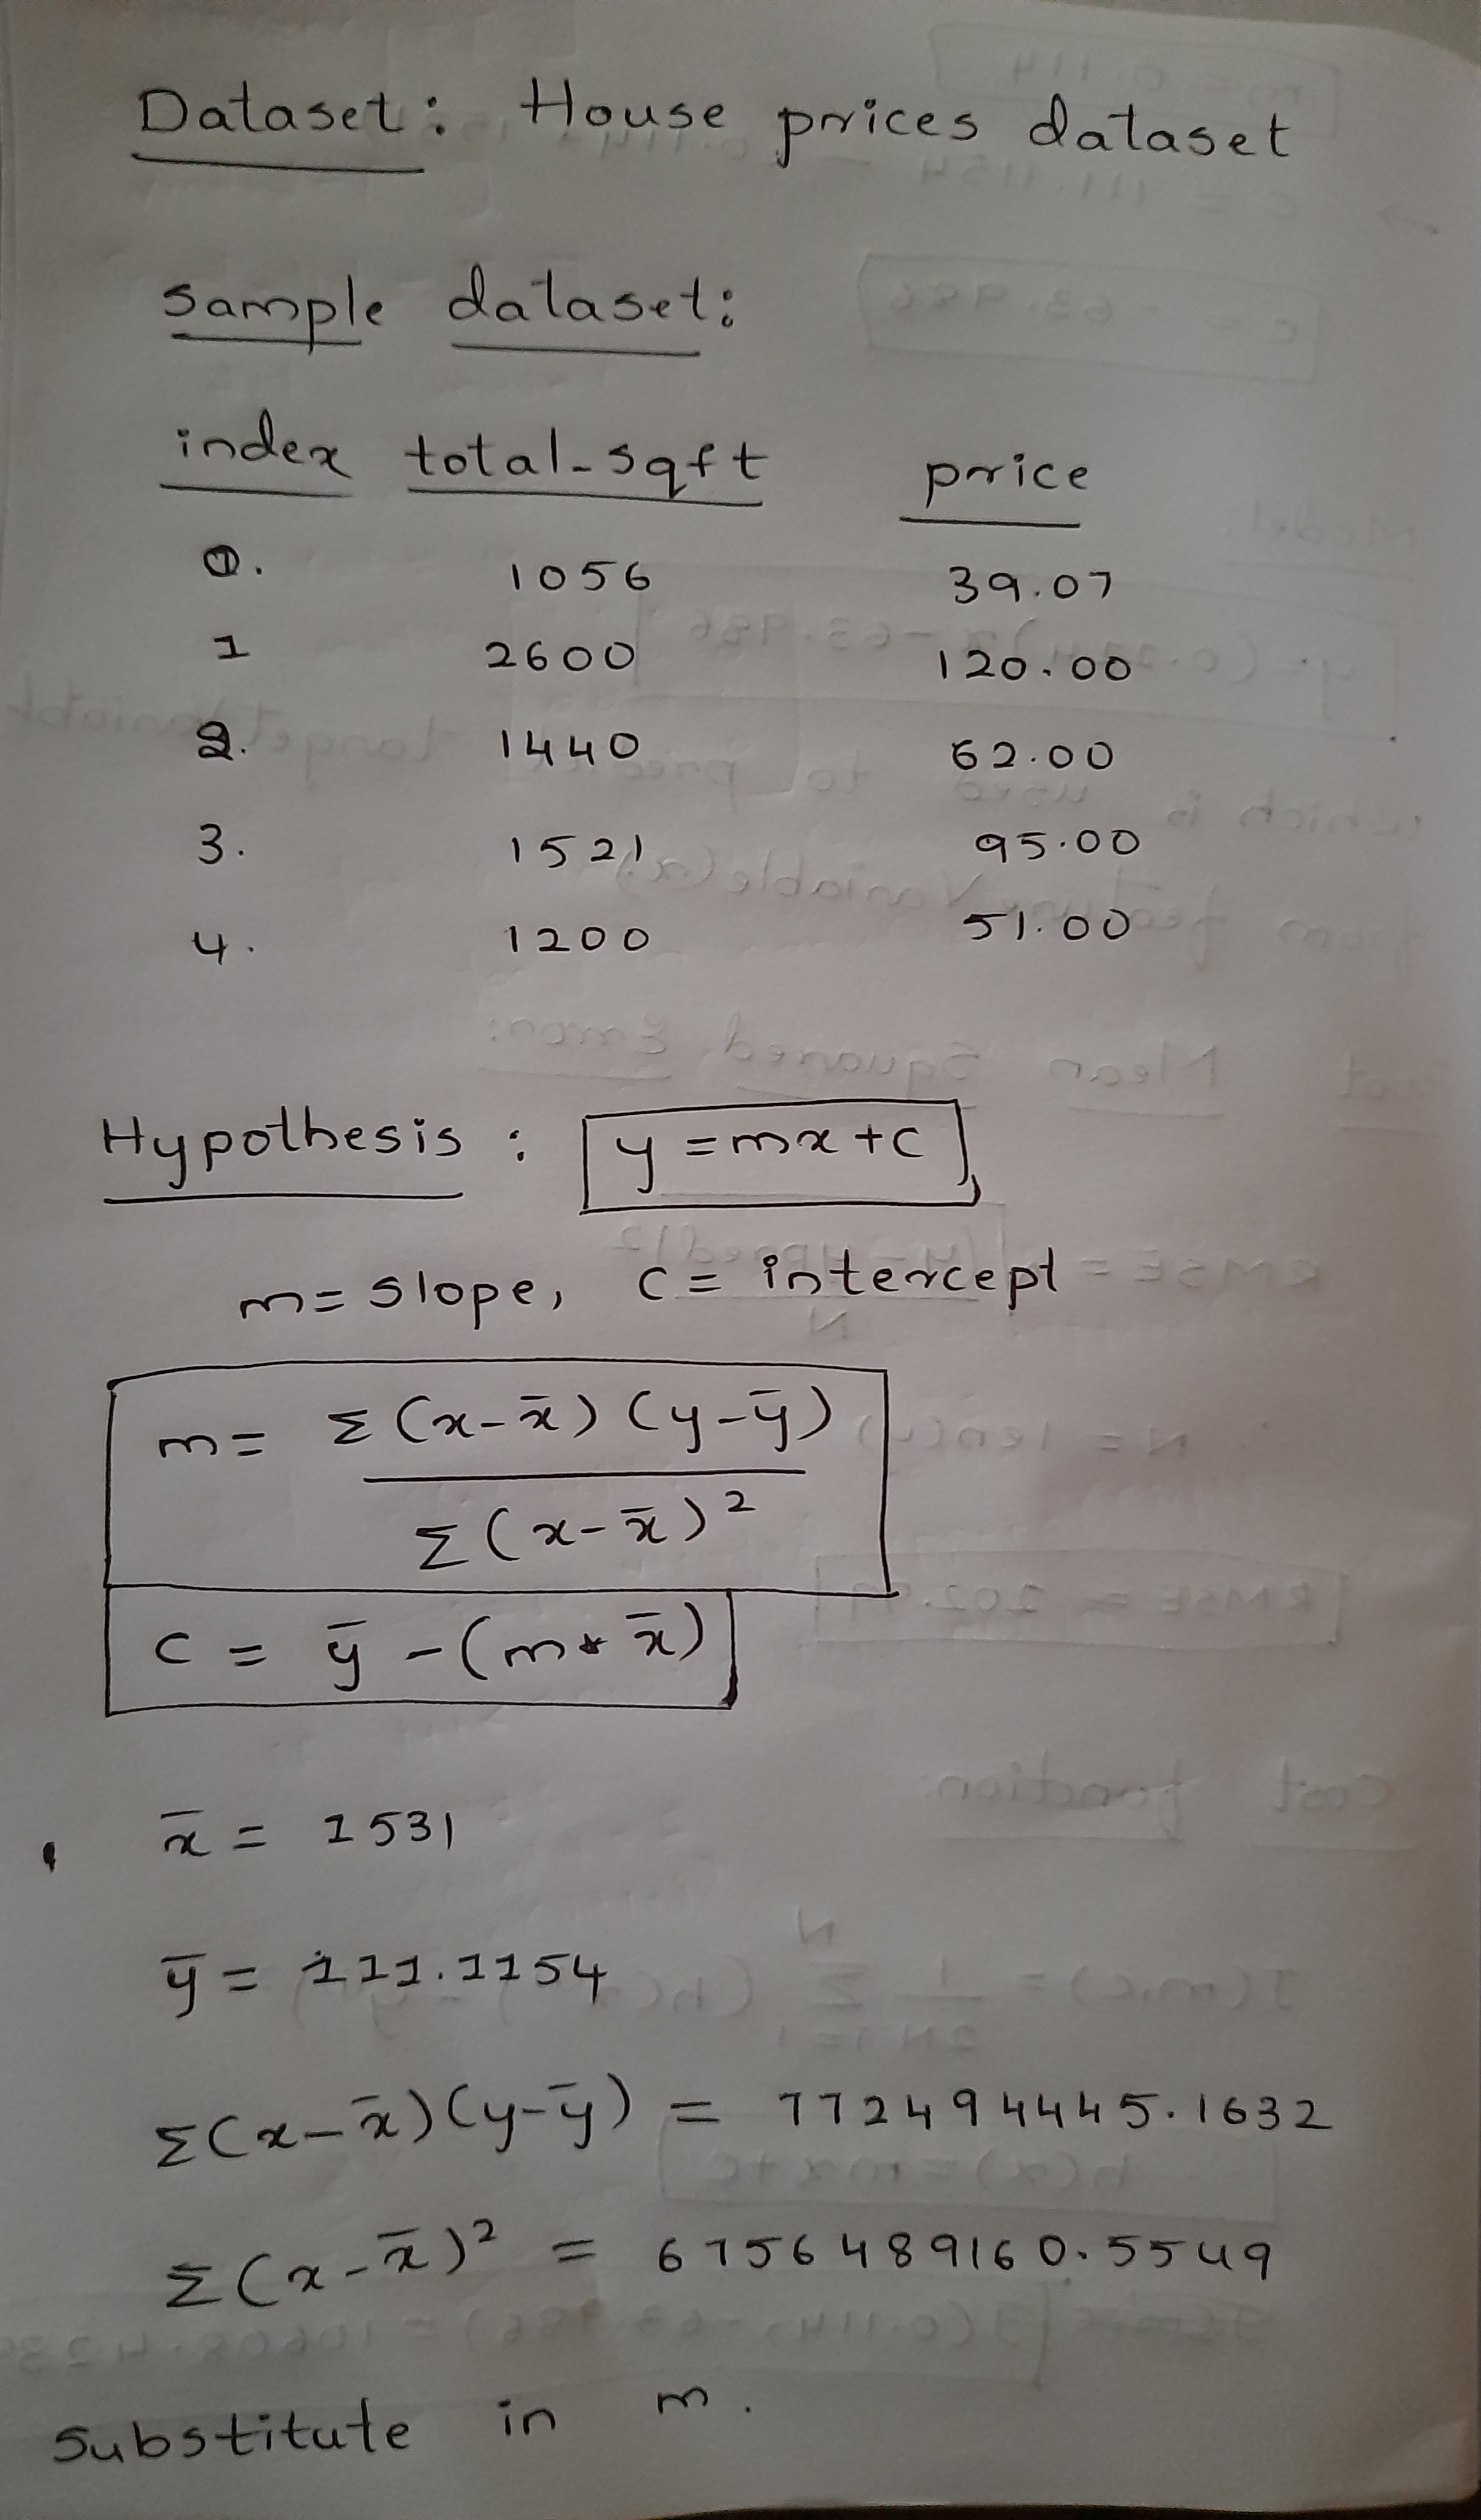 Dataset: House prices dataset
Sample dataset:
index total-sqft price
0. 1056 39.07
1 2600 120.00
2. 1440 62.00
3. 1521 95.00
4. 1200 51.00
Hypothesis : y = mx + c
m = slope, c = intercept
m = Σ(x-x̄)(y-ȳ)
Σ(x-x̄)²
c = ȳ - (m * x̄)
x̄ = 1531
ȳ = 111.1154
Σ(x-x̄)(y-ȳ) = 772494445.1632
Σ(x-x̄)² = 6756489160.5549
Substitute in m.